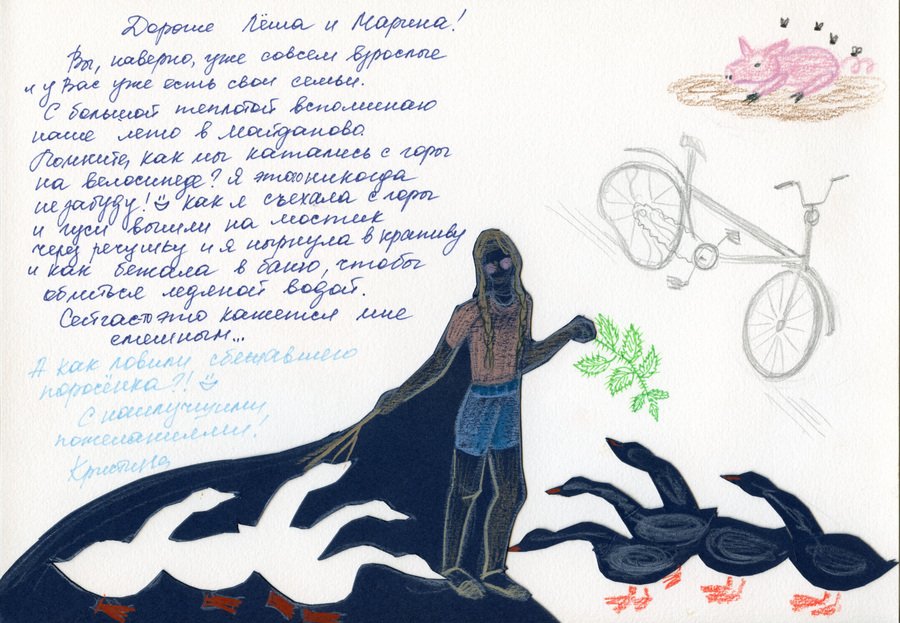 Дорогие Лёша и Марина!
Вы, наверно, уже совсем взрослые
и у Вас уже есть свои семьи.
С большой теплотой вспоминаю
наше лето в Майданово
Помните, как мы катались с горы
на велосипеде? Я это никогда
не забуду! Как я съехала с горы
и гуси вышли на мостик
через речушку и я нырнула в крапиву
и как бежала в баню, чтобы
облиться ледяной водой.
Сейчас это кажется мне
смешным...
А как ловили сбежавшего
поросёнка?!
С наилучшими
пожеланиями!
Кристина